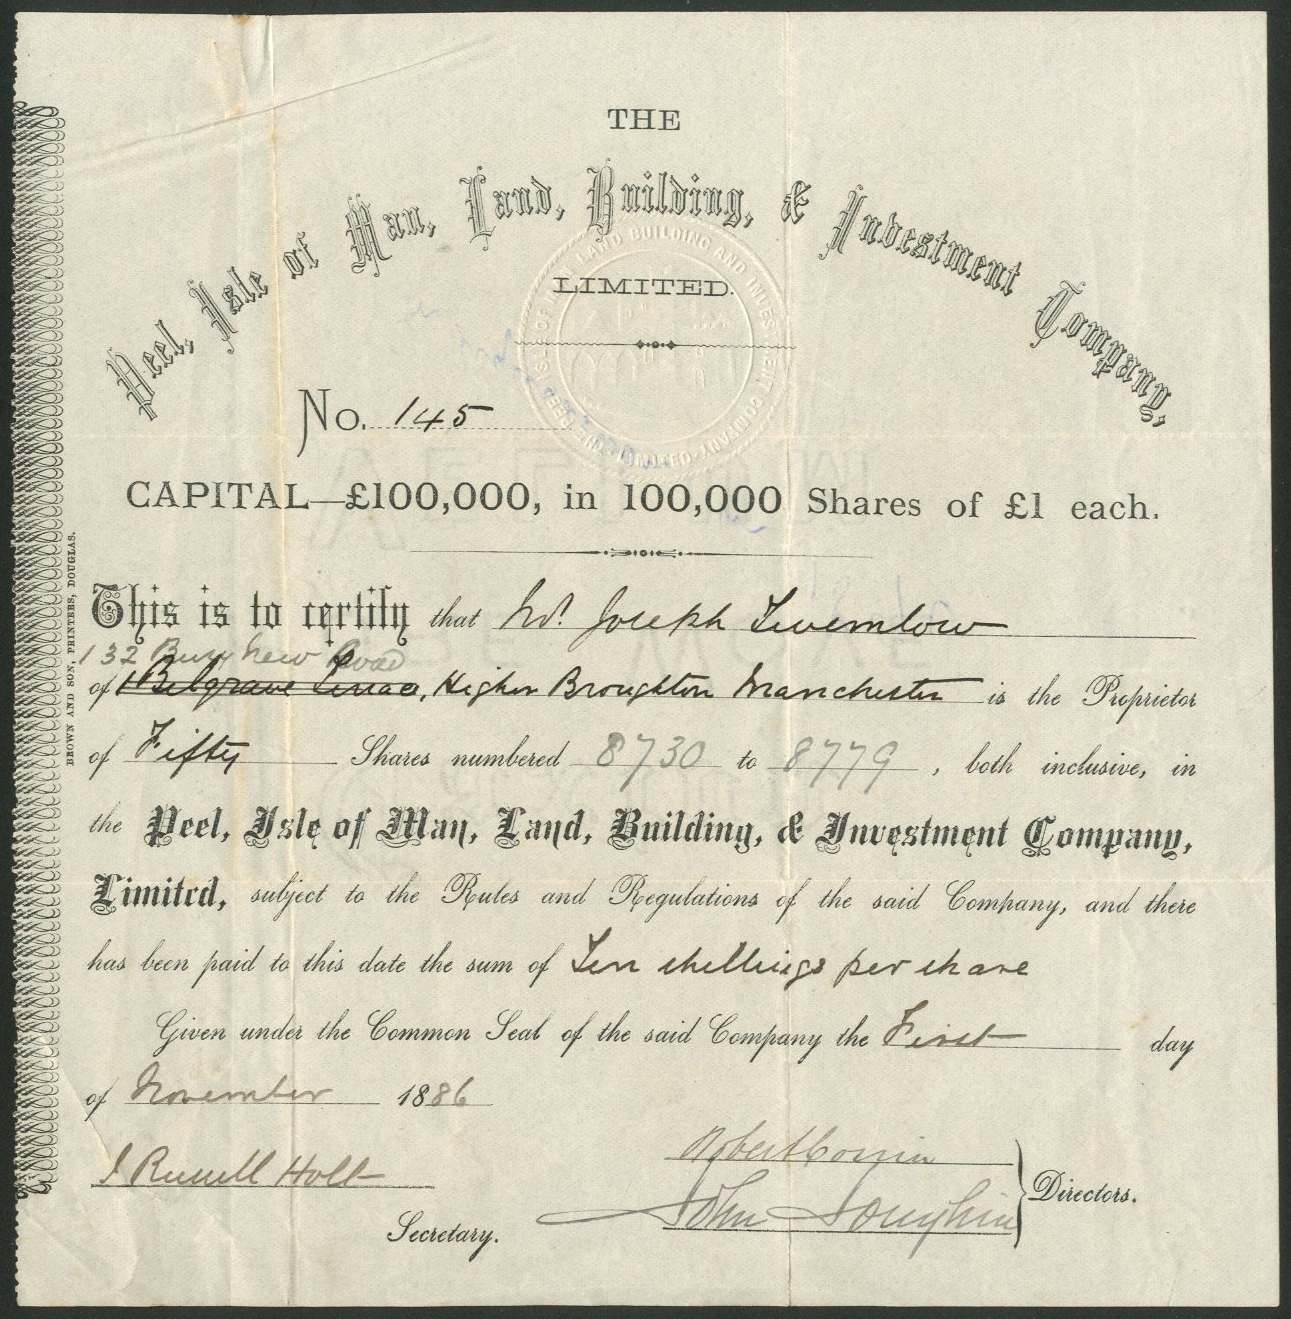 THE
Peel, Isle of Man, Land, Building, & Investment Company,
LIMITED.
PEEL ISLE OF MAN LAND BUILDING AND INVESTMENT COMPANY LIMITED
No. 145
CAPITAL—£100,000, in 100,000 Shares of £1 each.
This is to certify that Mr. Joseph Twemlow
132 Bury New Road
of 1 Belgrave Terrace, Higher Broughton Manchester is the Proprietor
of Fifty Shares numbered 8730 to 8779, both inclusive, in
the Peel, Isle of Man, Land, Building, & Investment Company,
Limited, subject to the Rules and Regulations of the said Company, and there
has been paid to this date the sum of Ten shillings per share
Given under the Common Seal of the said Company the First day
of November 1886
J Russell Holt
Secretary.
Robert Corrin
John Joughin
Directors.
BROWN AND SON, PRINTERS, DOUGLAS.